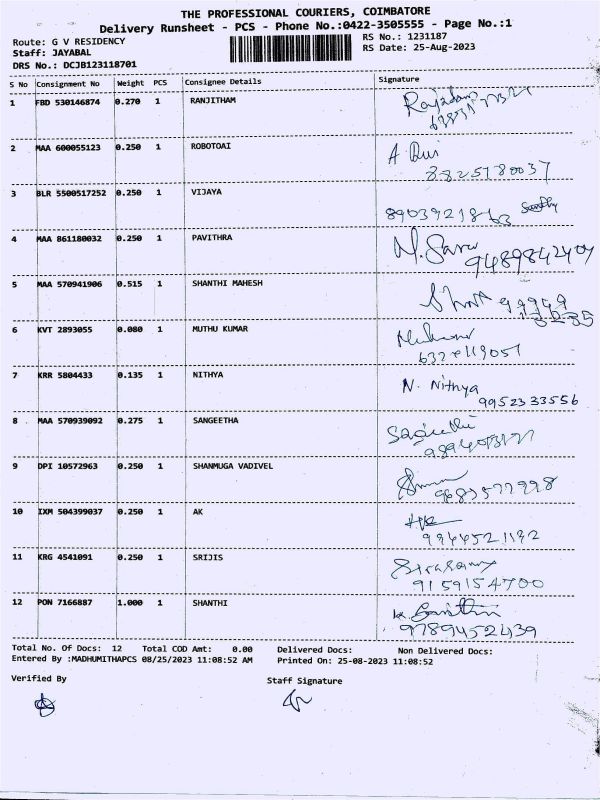 THE PROFESSIONAL COURIERS, COIMBATORE
Delivery Runsheet - PCS - Phone No.:0422-3505555 - Page No.:1
Route: G V RESIDENCY RS No.: 1231187
Staff: JAYABAL RS Date: 25-Aug-2023
DRS No.: DCJB123118701
S No Consignment No Weight PCS Consignee Details Signature
1 FBD 530146874 0.270 1 RANJITHAM
2 MAA 600055123 0.250 1 ROBOTOAI
8825780037
3 BLR 5500517252 0.250 1 VIJAYA
4 MAA 861180032 0.250 1 PAVITHRA
5 MAA 570941906 0.515 1 SHANTHI MAHESH
6 KVT 2893055 0.080 1 MUTHU KUMAR
7 KRR 5804433 0.135 1 NITHYA N. Nithya
9952333556
8 MAA 570939092 0.275 1 SANGEETHA
9 DPI 10572963 0.250 1 SHANMUGA VADIVEL
10 IXM 504399037 0.250 1 AK
9944521192
11 KRG 4541091 0.250 1 SRIJIS
9159154700
12 PON 7166887 1.000 1 SHANTHI
9789452439
Total No. Of Docs: 12 Total COD Amt: 0.00 Delivered Docs: Non Delivered Docs:
Entered By :MADHUMITHAPCS 08/25/2023 11:08:52 AM Printed On: 25-08-2023 11:08:52
Verified By Staff Signature